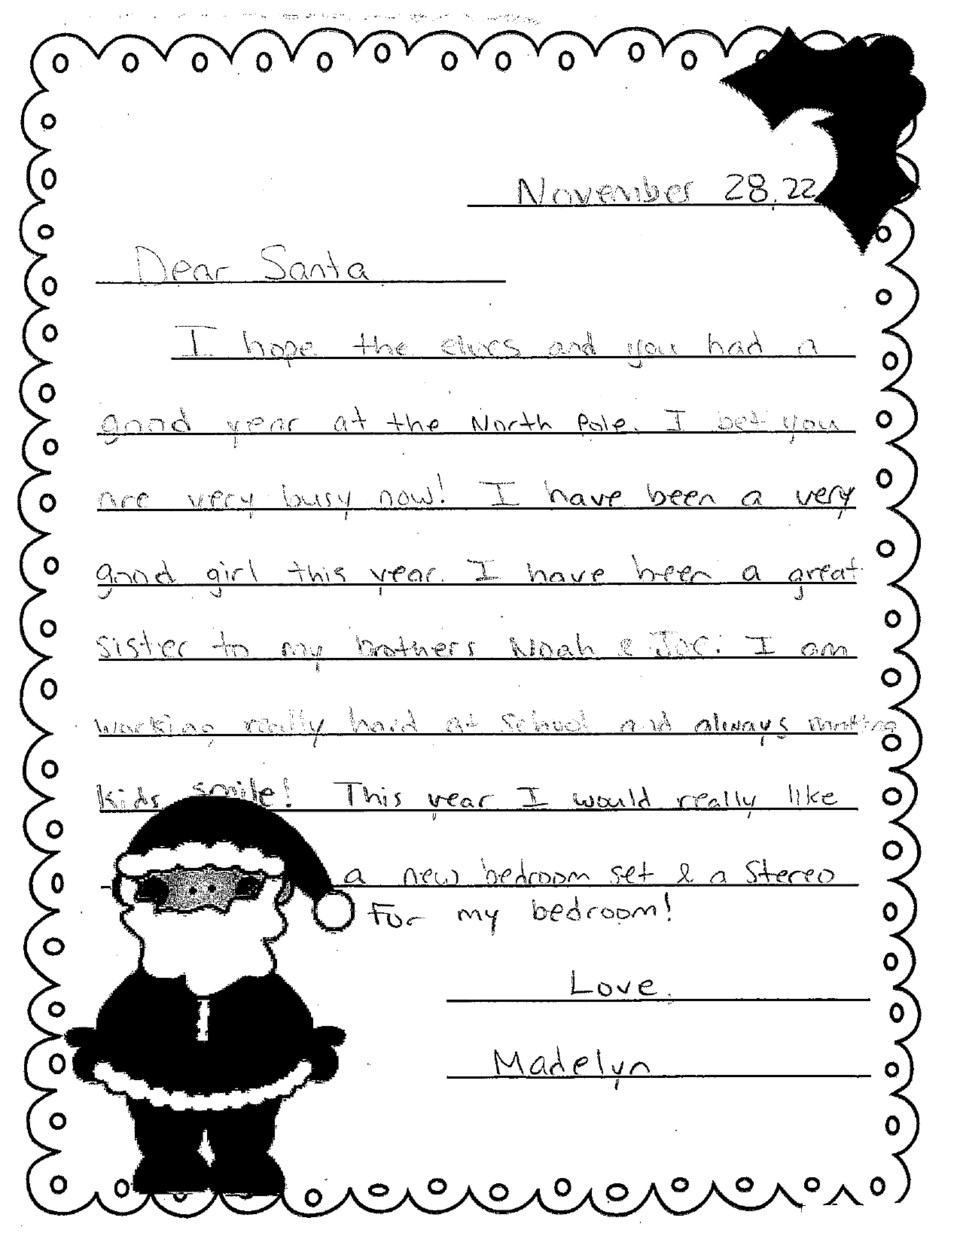 November 28, 22
Dear Santa
I hope the elves and you had a
good year at the North Pole. I bet you
are very busy now! I have been a very
good girl this year. I have been a great
sister to my brothers Noah & Joe. I am
working really hard at school and always making
kids smile! This year I would really like
a new bedroom set & a Stereo
For my bedroom!
Love,
Madelyn